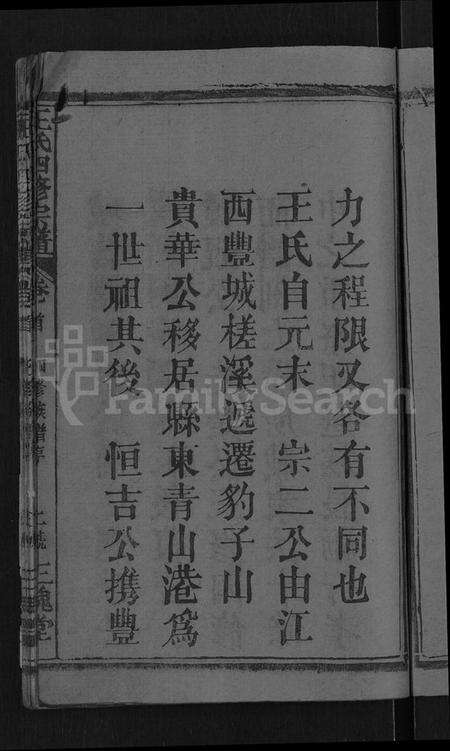 力之程限又各有不同也
王氏自元末　宗二公由江
西豐城槎溪遞遷豹子山
貴華公移居縣東青山港爲
一世祖其後　恒吉公攜豐
王氏四修宗譜
卷首
四修族譜序
三槐堂
FamilySearch